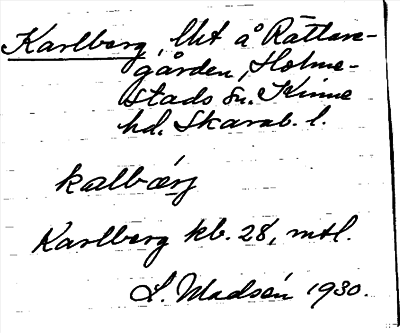 Karlberg, lht å Rättare-
gården, Holme-
stads sn. Kinne
hd. Skarab. l.
kalbærj
Karlberg kb. 28, mtl.
L. Madsén 1930.